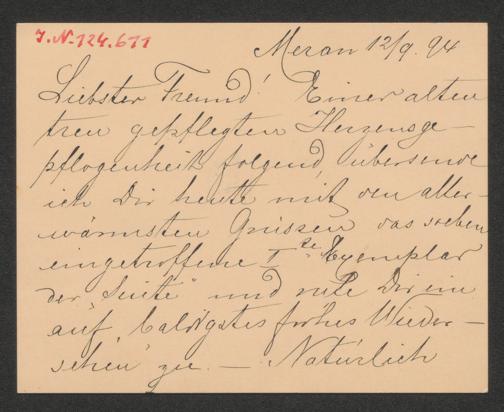 J.N. 124.611
Meran 12/9. 94
Liebster Freund! Einer alten
treu gepflegten Herzensge-
pflogenheit folgend, übersende
ich Dir heute mit den aller-
wärmsten Grüssen das soeben
eingetroffene Iте Exemplar
der "Suite" und rufe Dir ein
"auf baldigstes frohes Wieder-
sehen" zu. — Natürlich